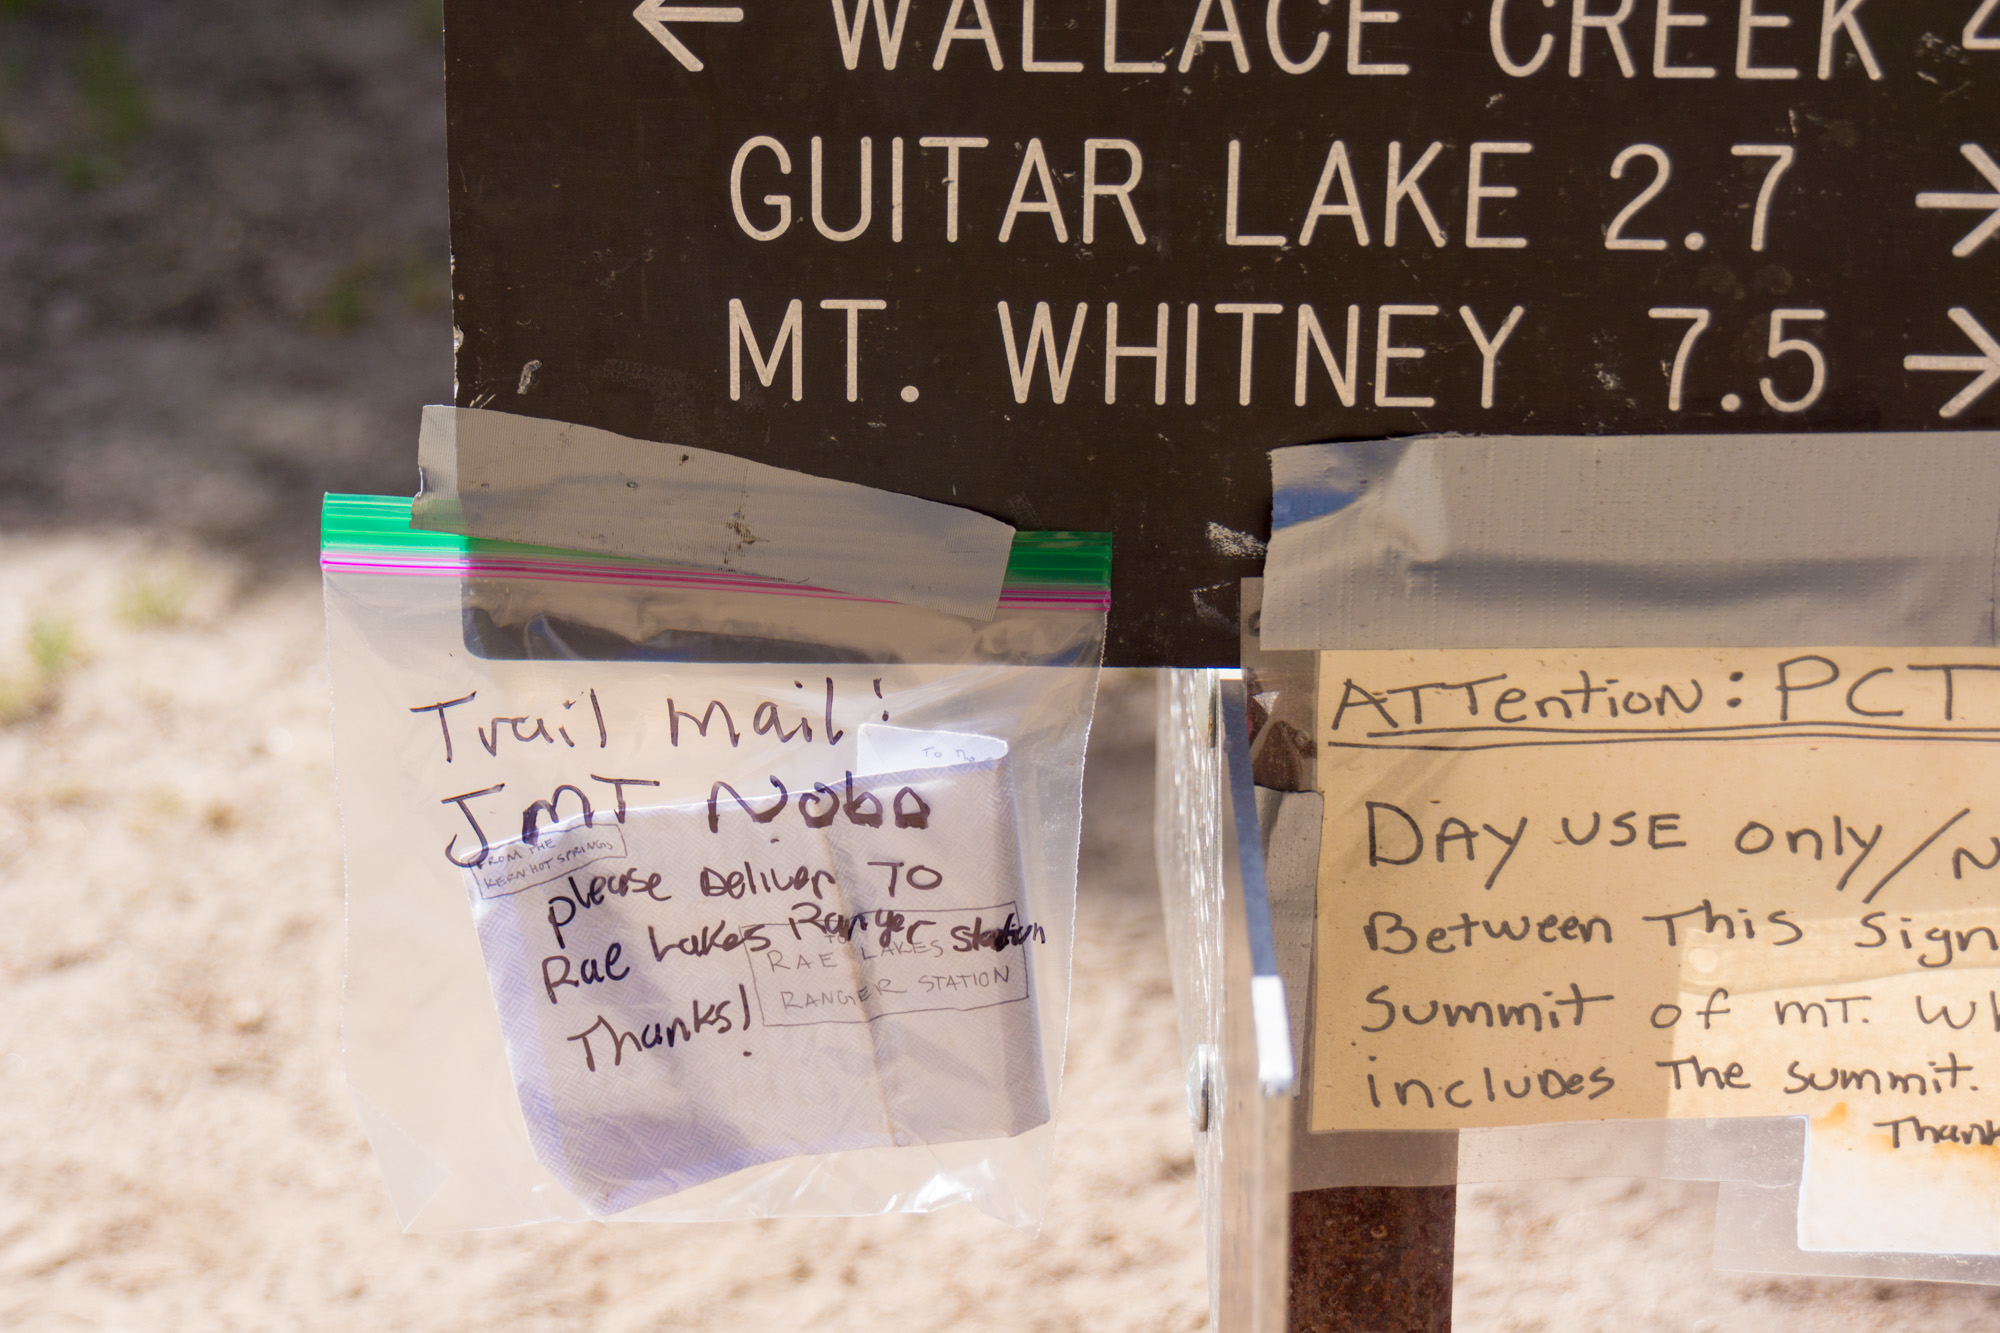 ← WALLACE CREEK
GUITAR LAKE 2.7 →
MT. WHITNEY 7.5 →
Trail mail:
JMT Nobo
please Deliver TO
Rae Lakes Ranger station
Thanks!
To The
FROM THE
KERN HOT SPRINGS
TO
RAE LAKES
RANGER STATION
ATTention: PCT
DAY USE only/N
Between This Sign
Summit of mT. Wh
incluDes The summit.
Thank